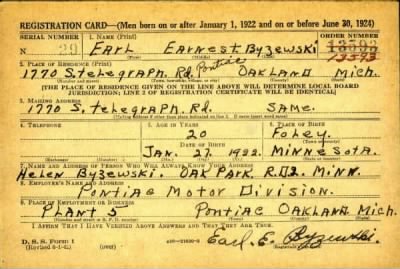 REGISTRATION CARD—(Men born on or after January 1, 1922 and on or before June 30, 1924)
SERIAL NUMBER 1. NAME (Print) ORDER NUMBER
N 29 EARL EARNEST BYZEWSKI 13593
(First) (Middle) (Last) 13593
2. PLACE OF RESIDENCE (Print)
1770 S. telegraph. Rd. Pontiac OAKLAND Mich.
(Number and street) (Town, township, village, or city) (County) (State)
[THE PLACE OF RESIDENCE GIVEN ON THE LINE ABOVE WILL DETERMINE LOCAL BOARD
JURISDICTION; LINE 2 OF REGISTRATION CERTIFICATE WILL BE IDENTICAL]
3. MAILING ADDRESS
1770 S. telegraph. Rd. SAME.
[Mailing address if other than place indicated on line 2. If same insert word same]
4. TELEPHONE 5. AGE IN YEARS 6. PLACE OF BIRTH
20 Foley.
DATE OF BIRTH (Town or county)
JAN 27 1922. MINNESOTA.
(Exchange) (Number) (Mo.) (Day) (Yr.) (State or country)
7. NAME AND ADDRESS OF PERSON WHO WILL ALWAYS KNOW YOUR ADDRESS
Helen Byzewski. OAK PARK. R.D2. MINN.
8. EMPLOYER'S NAME AND ADDRESS
Pontiac Motor Division.
9. PLACE OF EMPLOYMENT OR BUSINESS
PLANT 5 Pontiac OAKLAND. Mich.
(Number and street or R. F. D. number) (Town) (County) (State)
I AFFIRM THAT I HAVE VERIFIED ABOVE ANSWERS AND THAT THEY ARE TRUE.
D. S. S. Form 1
(Revised 6-1-42) (over) 16—21630-2 Earl. E. Byzewski.